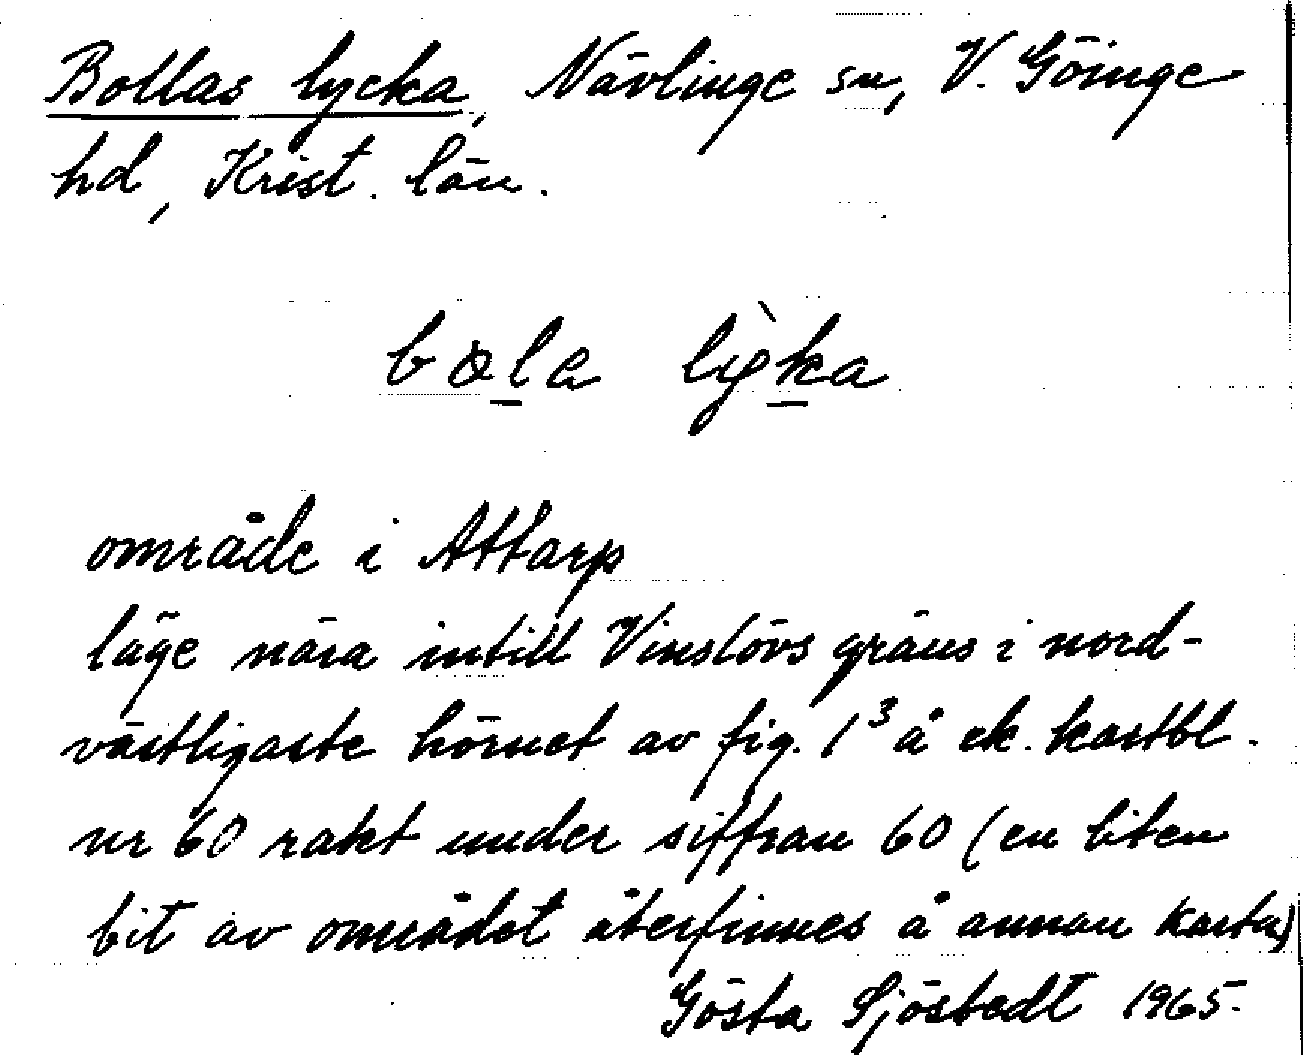 Bollas lycka, Nävlinge sn, V. Göinge
hd, Krist. län.
område i Attarp
läge nära intill Vinslövs gräns i nord-
västligaste hörnet av fig. 1³ å ek. kartbl.
nr 60 rakt under siffran 60 (en liten
bit av området återfinnes å annan karta)
Gösta Sjöstedt 1965.